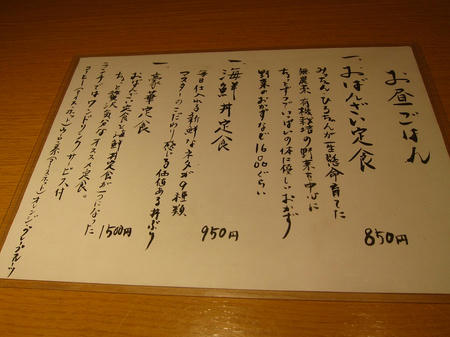 お昼ごはん
一、おばんざい定食
みったん・ひろたんが一生懸命育てた
無農薬、有機栽培の野菜を中心に
ちょっとずついっぱいの体に優しいおかず
野菜のおかずなど1600ぐらい
850円
一、海鮮丼定食
毎日仕入れる新鮮なネタが9種類
マスターのこだわり感じる価値ある丼ぶり
950円
一、豪華定食
おばんざい定食と海鮮丼定食が一つになった
ちょっと贅沢気分なオススメ定食。
1500円
ランチにはワンドリンクサービス付
コーヒー(アイス・ホット)ウーロン茶(アイス・ホット)オレンジ・グレープフルーツ